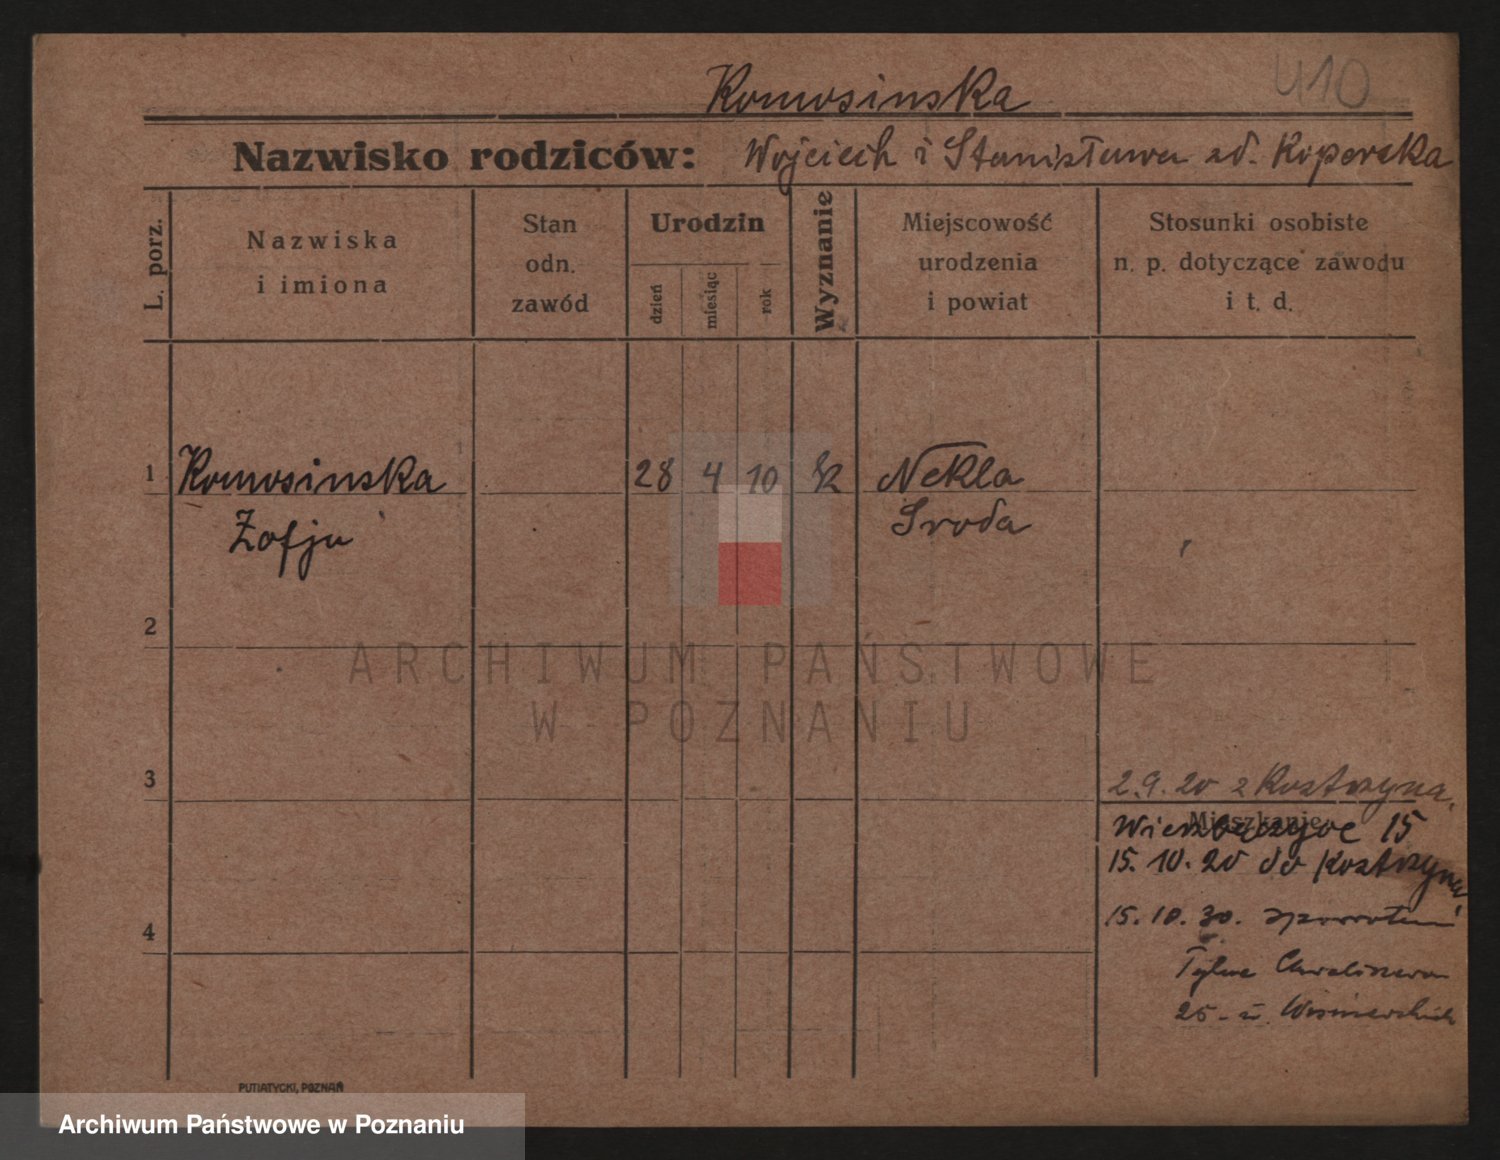 410
Komosinska
Nazwisko rodziców: Wojciech i Stanisława zd. Koperska
L. porz.
Nazwiska
i imiona
Stan
odn.
zawód
Urodzin
dzień
miesiąc
rok
Wyznanie
Miejscowość
urodzenia
i powiat
Stosunki osobiste
n. p. dotyczące zawodu
i t. d.
1 Komosinska 28 4 10 Nekla
Zofja Sroda
2
ARCHIWUM PAŃSTWOWE
W POZNANIU
3
2.9.20 z Kostrzyna.
Mieszkanie
Wierzbięcyce 15
15.10.20 do Kostrzyna
4
15.10.30. zpowrotem
Tylne Chwaliszewo
25 - u. Wisniewskich
PUTIATYCKI, POZNAŃ
Archiwum Państwowe w Poznaniu